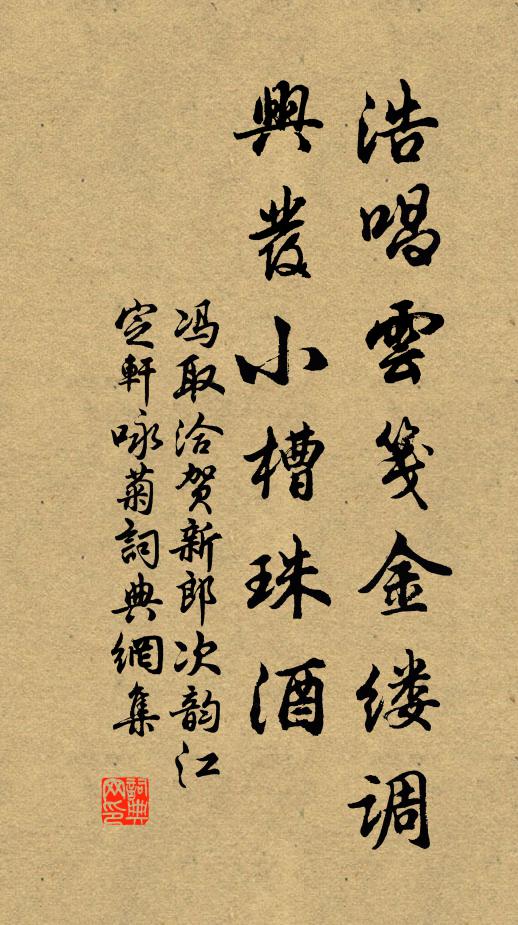 浩唱雲笺金缕调
興發小槽珠酒
冯取洽贺新郎次韵江
定軒咏菊詞典網集
詞典网印